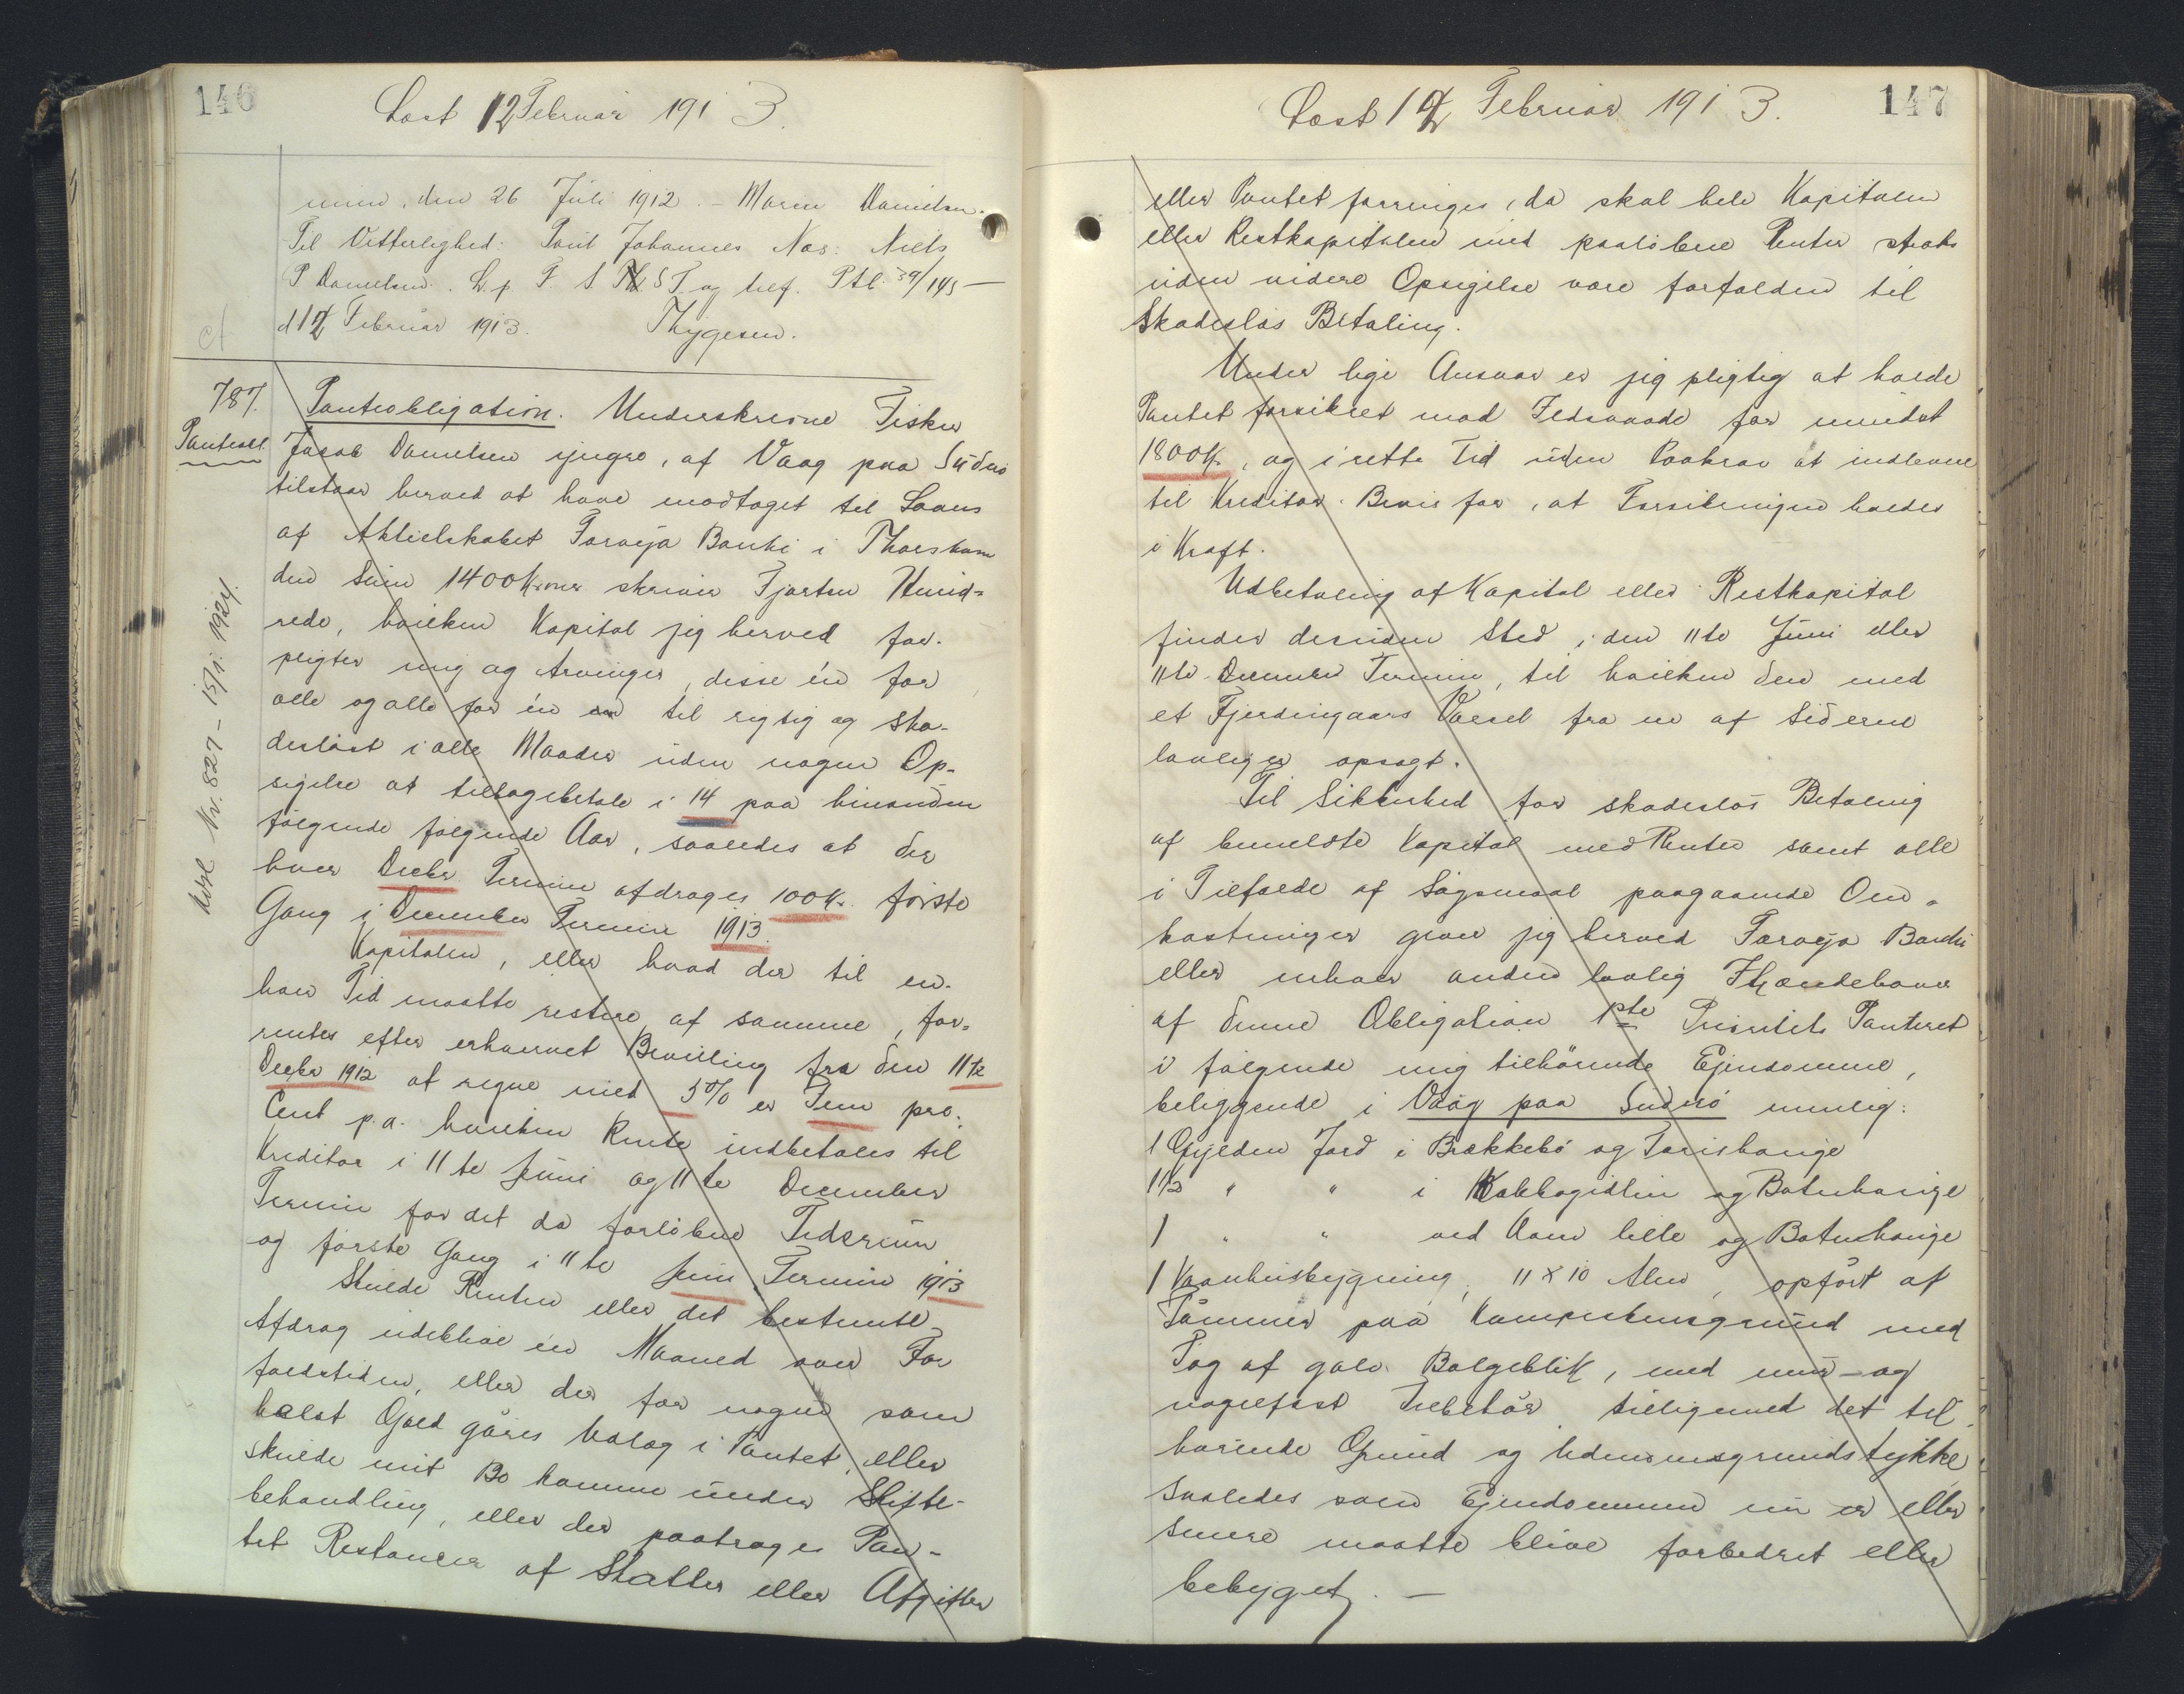 146
Læst 12 Februar 1913.
min, den 26 Juli 1912. - Maren Danielsen.
Til Vitterlighed: Poul Johannes Næs: Niels
P Danielsen. L. f. T. S. S T. og ref. Ptb. 39/145 —
d 12 Februar 1913. Thygesen.
ct
787.
Panteobl.
Aflst Nr. 827 - 15/1. 1924.
Panteobligation. Underskrevne Fisker
Jacob Danielsen yngre, af Vaag paa Süderø
tilstaar herved at have modtaget til Laans
af Aktieselskabet Førøja Banki i Thorshavn
den Sum 1400 Kroner skriver Fjorten Hund-
rede, hvilken Kapital jeg herved for-
pligter mig og Arvinger, disse én for
alle og alle for én til rigtig og ska-
desløst i alle Maader uden nogen Op-
sigelse at tilbagebetale i 14 paa hinanden
følgende følgende Aar, saaledes at der
hver Decbr Termin afdrages 100 Kr. første
Gang i December Termin 1913.
Kapitalen, eller hvad der til en-
hver Tid maatte restere af samme, for-
rentes efter erhvervet Bevilling fra den 11te
Decbr 1912 at regne med 5% er Fem pro.
Cent p.a. hvilken Rente indbetales til
Kreditor i 11te Juni og 11te December
Termin for det da forløbne Tidsrum
og første Gang i 11te Juni Termin 1913
Skulde Renten eller det bestemte
Afdrag udeblive én Maaned over For
faldstiden, eller der for nogen som
helst Gæld gøres Udlæg i Pantet, eller
skulde mit Bo komme under Skifte-
behandling, eller der paadrages Pan-
tet Restancer af Skatter eller Afgifter
147
Læst 12 Februar 1913.
eller Pantet forringes, da skal hele Kapitalen
eller Restkapitalen med paaløbne Renter straks
uden videre Opsigelse være forfalden til
Skadesløs Betaling.
Under lige Ansvar er jeg pligtig at holde
Pantet forsikret mod Ildsvaade for mindst
1800 Kr, og i rette Tid uden Paakrav at indlevere
til Kreditor Bevis for, at Forsikringen holdes
i Kraft.
Udbetaling af Kapital eller Restkapital
finder desuden Sted i den 11te Juni eller
11te December Termin, til hvilken den med
et Fjerdingaars Varsel fra en af Siderne
lovlig er opsagt.
Til Sikkerhed for skadesløs Betaling
af bemeldte Kapital med Renter samt alle
i Tilfælde af Søgsmaal paagaaende Om-
kostninger giver jeg herved Førøja Banki
eller enhver anden lovlig Ihændehaver
af denne Obligation 1ste Prioritets Panteret
i følgende mig tilhørende Ejendomme,
beliggende i Vaag paa Süderø nemlig:
1 Gylden Jord i Brækkebø og Torishauge
1 1/2 " " i og Botnhauge
1 " " ved Aaen lille og Botnhauge
1 Vaanhusbygning, 11 x 10 Alen, opført af
Tømmer paa Kampestensgrund med
Tag af galv. Bølgeblik, med mur- og
nagelfast Tilbehør tilligemed det til
hørende Grund og Udenomsgrundstykke
Saaledes som Ejendommen nu er eller
senere maatte blive forbedret eller
bebygget. —